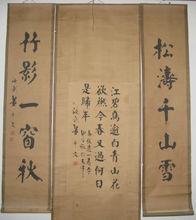 松濤千山雪
江碧鳥逾白青山花
欲然今春又過何日
是歸年
竹影一窗秋